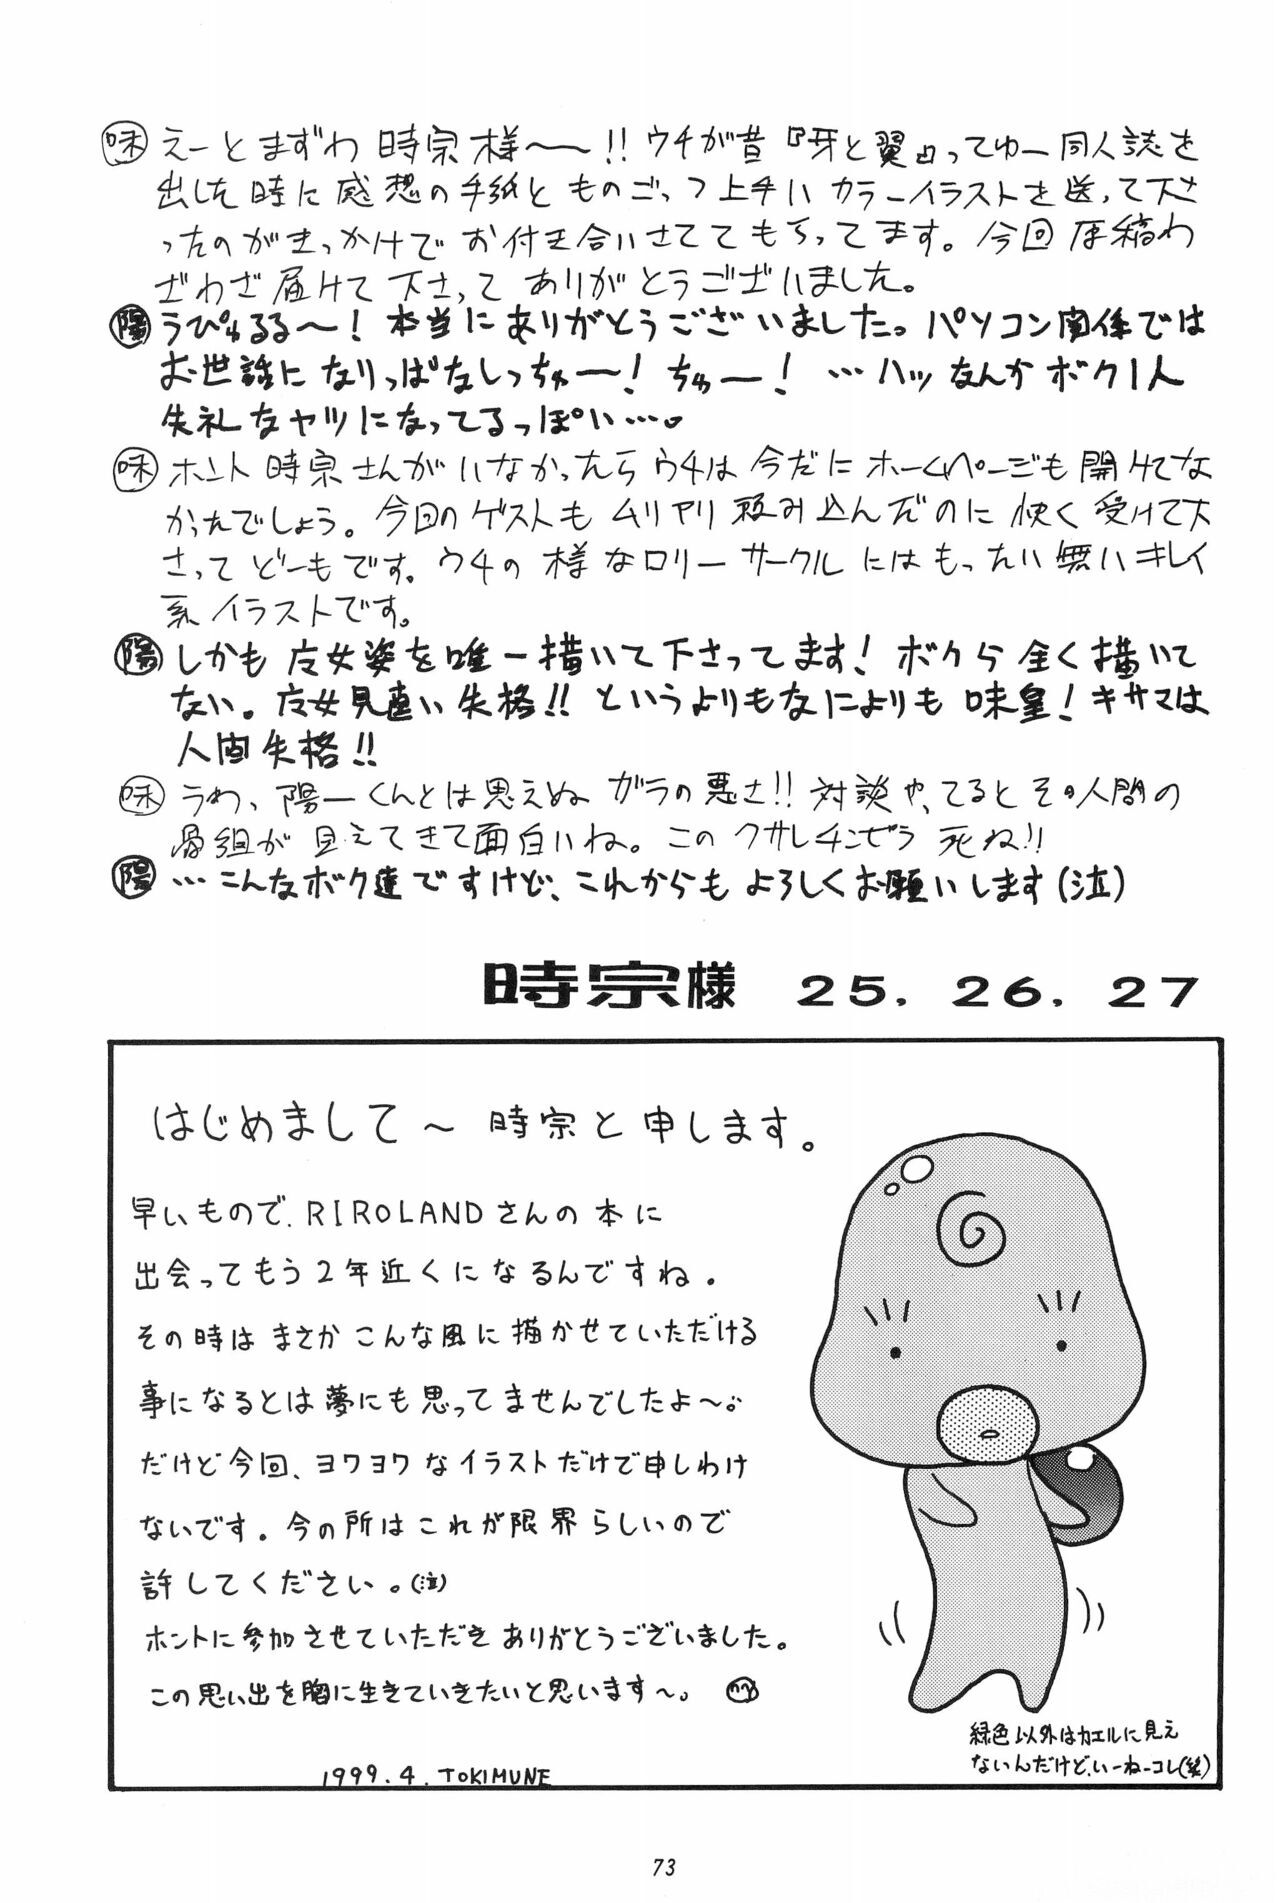 味 えーとまずわ 時宗様～～!! ウチが昔『牙と翼』ってゆー同人誌を
出した時に感想の手紙と ものごっつ上手い カラーイラストを送って下さ
ったのがきっかけで お付き合いさせてもらってます。今回 原稿わ
ざわざ届けて 下さって ありがとうございました。
陽 うぴゅるる～! 本当にありがとうございました。パソコン関係では
お世話になりっぱなしっちゅー! ちゅー! …ハッなんかボク1人
失礼なヤツになってるっぽい…。
味 ホント 時宗さんがいなかったらウチは今だにホームページも開けてな
かったでしょう。今回のゲストも ムリヤリ 頼み込んだのに 快く 受けて下
さって どーもです。ウチの 様なロリーサークルにはもったい無いキレイ
系イラストです。
陽 しかも 女姿を唯一描いて下さってます! ボクら 全く描いて
ない。女見直い失格!! というよりもなによりも 味皇! キサマは
人間失格!!
味 うわっ 陽一くんとは思えぬ ガラの悪さ!! 対談やってるとその人間の
骨組が 見えてきて面白いね。このクサレチンピラ 死ね!!
陽 …こんなボク達ですけど、これからもよろしくお願いします(泣)
時宗様 25. 26. 27
はじめまして～ 時宗と申します。
早いもので、RIROLANDさんの本に
出会ってもう2年近くになるんですね。
その時は まさか こんな風に描かせていただける
事になるとは夢にも思ってませんでしたよ～。
だけど今回、ヨワヨワなイラストだけで申しわけ
ないです。今の所はこれが限界らしいので
許してください。(泣)
ホントに参加させていただき ありがとうございました。
この思い出を胸に生きていきたいと思います～。
緑色以外はカエルに見え
ないんだけど、いーねーコレ(笑)
1999.4. TOKIMUNE
73